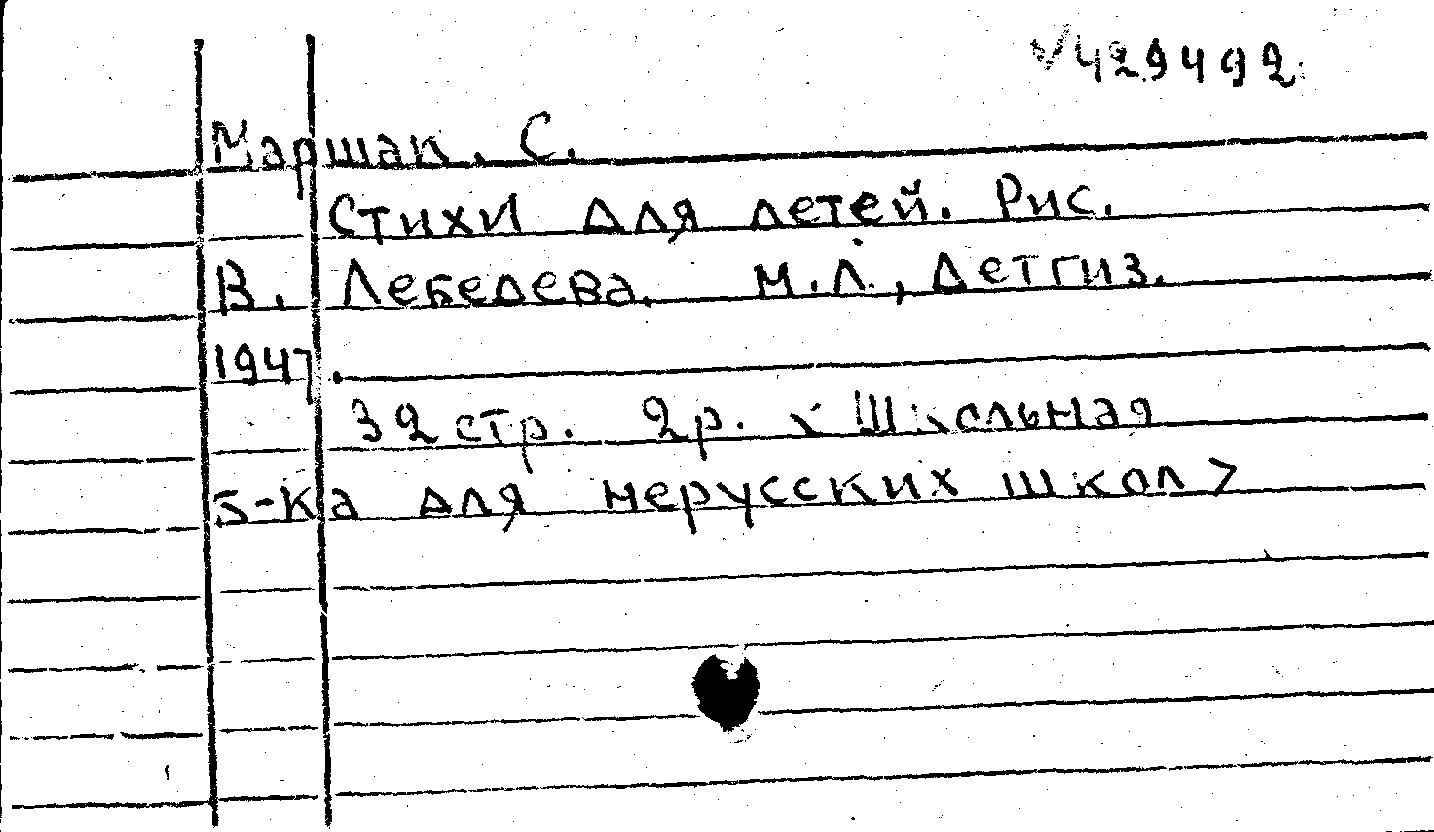 √429492
Маршак. С.
Стихи для детей. Рис.
В. Лебедева. М.Л., Детгиз.
1947.
32 стр. 2р. <Школьная
б-ка для нерусских школ>